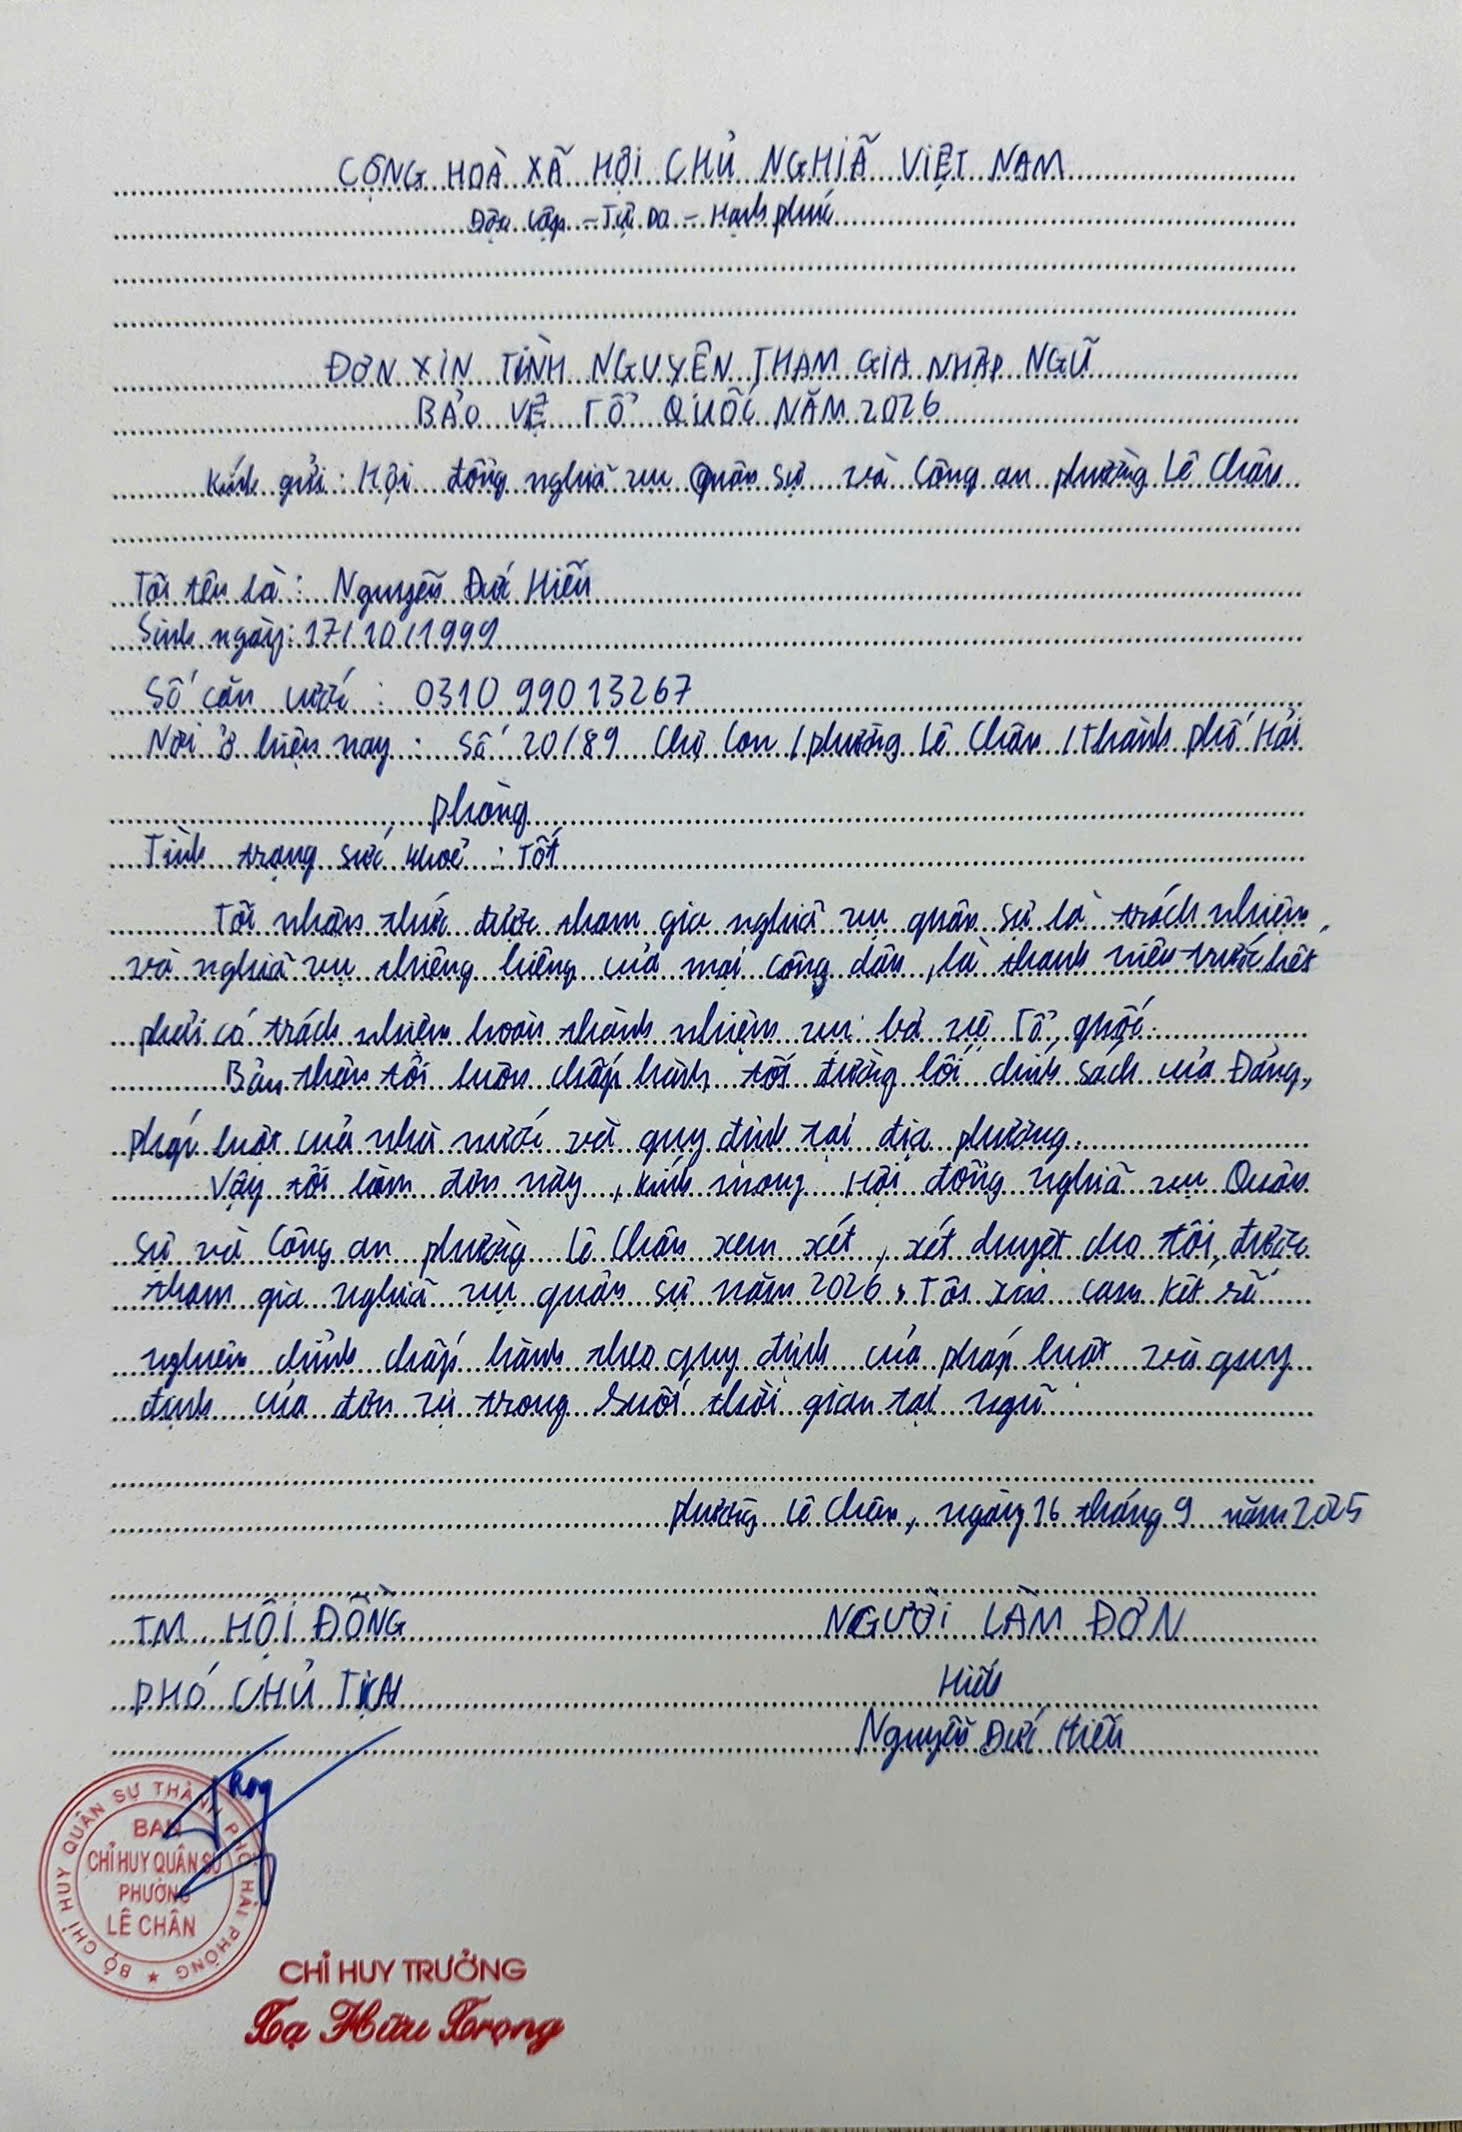 CỘNG HOÀ XÃ HỘI CHỦ NGHIÃ VIỆT NAM
Độc lập - Tự Do - Hạnh phúc
ĐƠN XIN TÌNH NGUYỆN THAM GIA NHẬP NGŨ
BẢO VỆ TỔ QUỐC NĂM 2026
Kính gửi: Hội đồng nghiã vụ Quân sự và Công an phường Lê Chân
Tôi tên là: Nguyễn Đức Hiếu
Sinh ngày: 17/10/1999
Số căn cước: 031099013267
Nơi ở hiện nay: Số 20/89 Chợ Con, phường Lê Chân, thành phố Hải
phòng
Tình trạng sức khoẻ: Tốt
Tôi nhận thức được tham gia nghiã vụ quân sự là trách nhiệm
và nghiã vụ thiêng liêng của mọi công dân, là thanh niên trước hết
phải có trách nhiệm hoàn thành nhiệm vụ bả vệ Tổ quốc.
Bản thân tôi luôn chấp hành tốt đường lối chính sách của Đảng,
pháp luật của nhà nước và quy định tại địa phương.
Vậy tôi làm đơn này, kính mong Hội đồng nghiã vụ Quân
sự và Công an phường Lê Chân xem xét, xét duyệt cho tôi được
tham gia nghiã vụ quân sự năm 2026. Tôi xin cam kết sẽ
nghiêm chỉnh chấp hành theo quy định của pháp luật và quy
định của đơn vị trong suốt thời gian tại ngũ
phường Lê Chân, ngày 16 tháng 9 năm 2025
TM. HỘI ĐỒNG NGƯỜI LÀM ĐƠN
PHÓ CHỦ TỊCH Hiếu
Nguyễn Đức Hiếu
BỘ CHỈ HUY QUÂN SỰ THÀNH PHỐ HẢI PHÒNG
BAN
CHỈ HUY QUÂN SỰ
PHƯỜNG
LÊ CHÂN
CHỈ HUY TRƯỞNG
Tạ Hữu Trọng